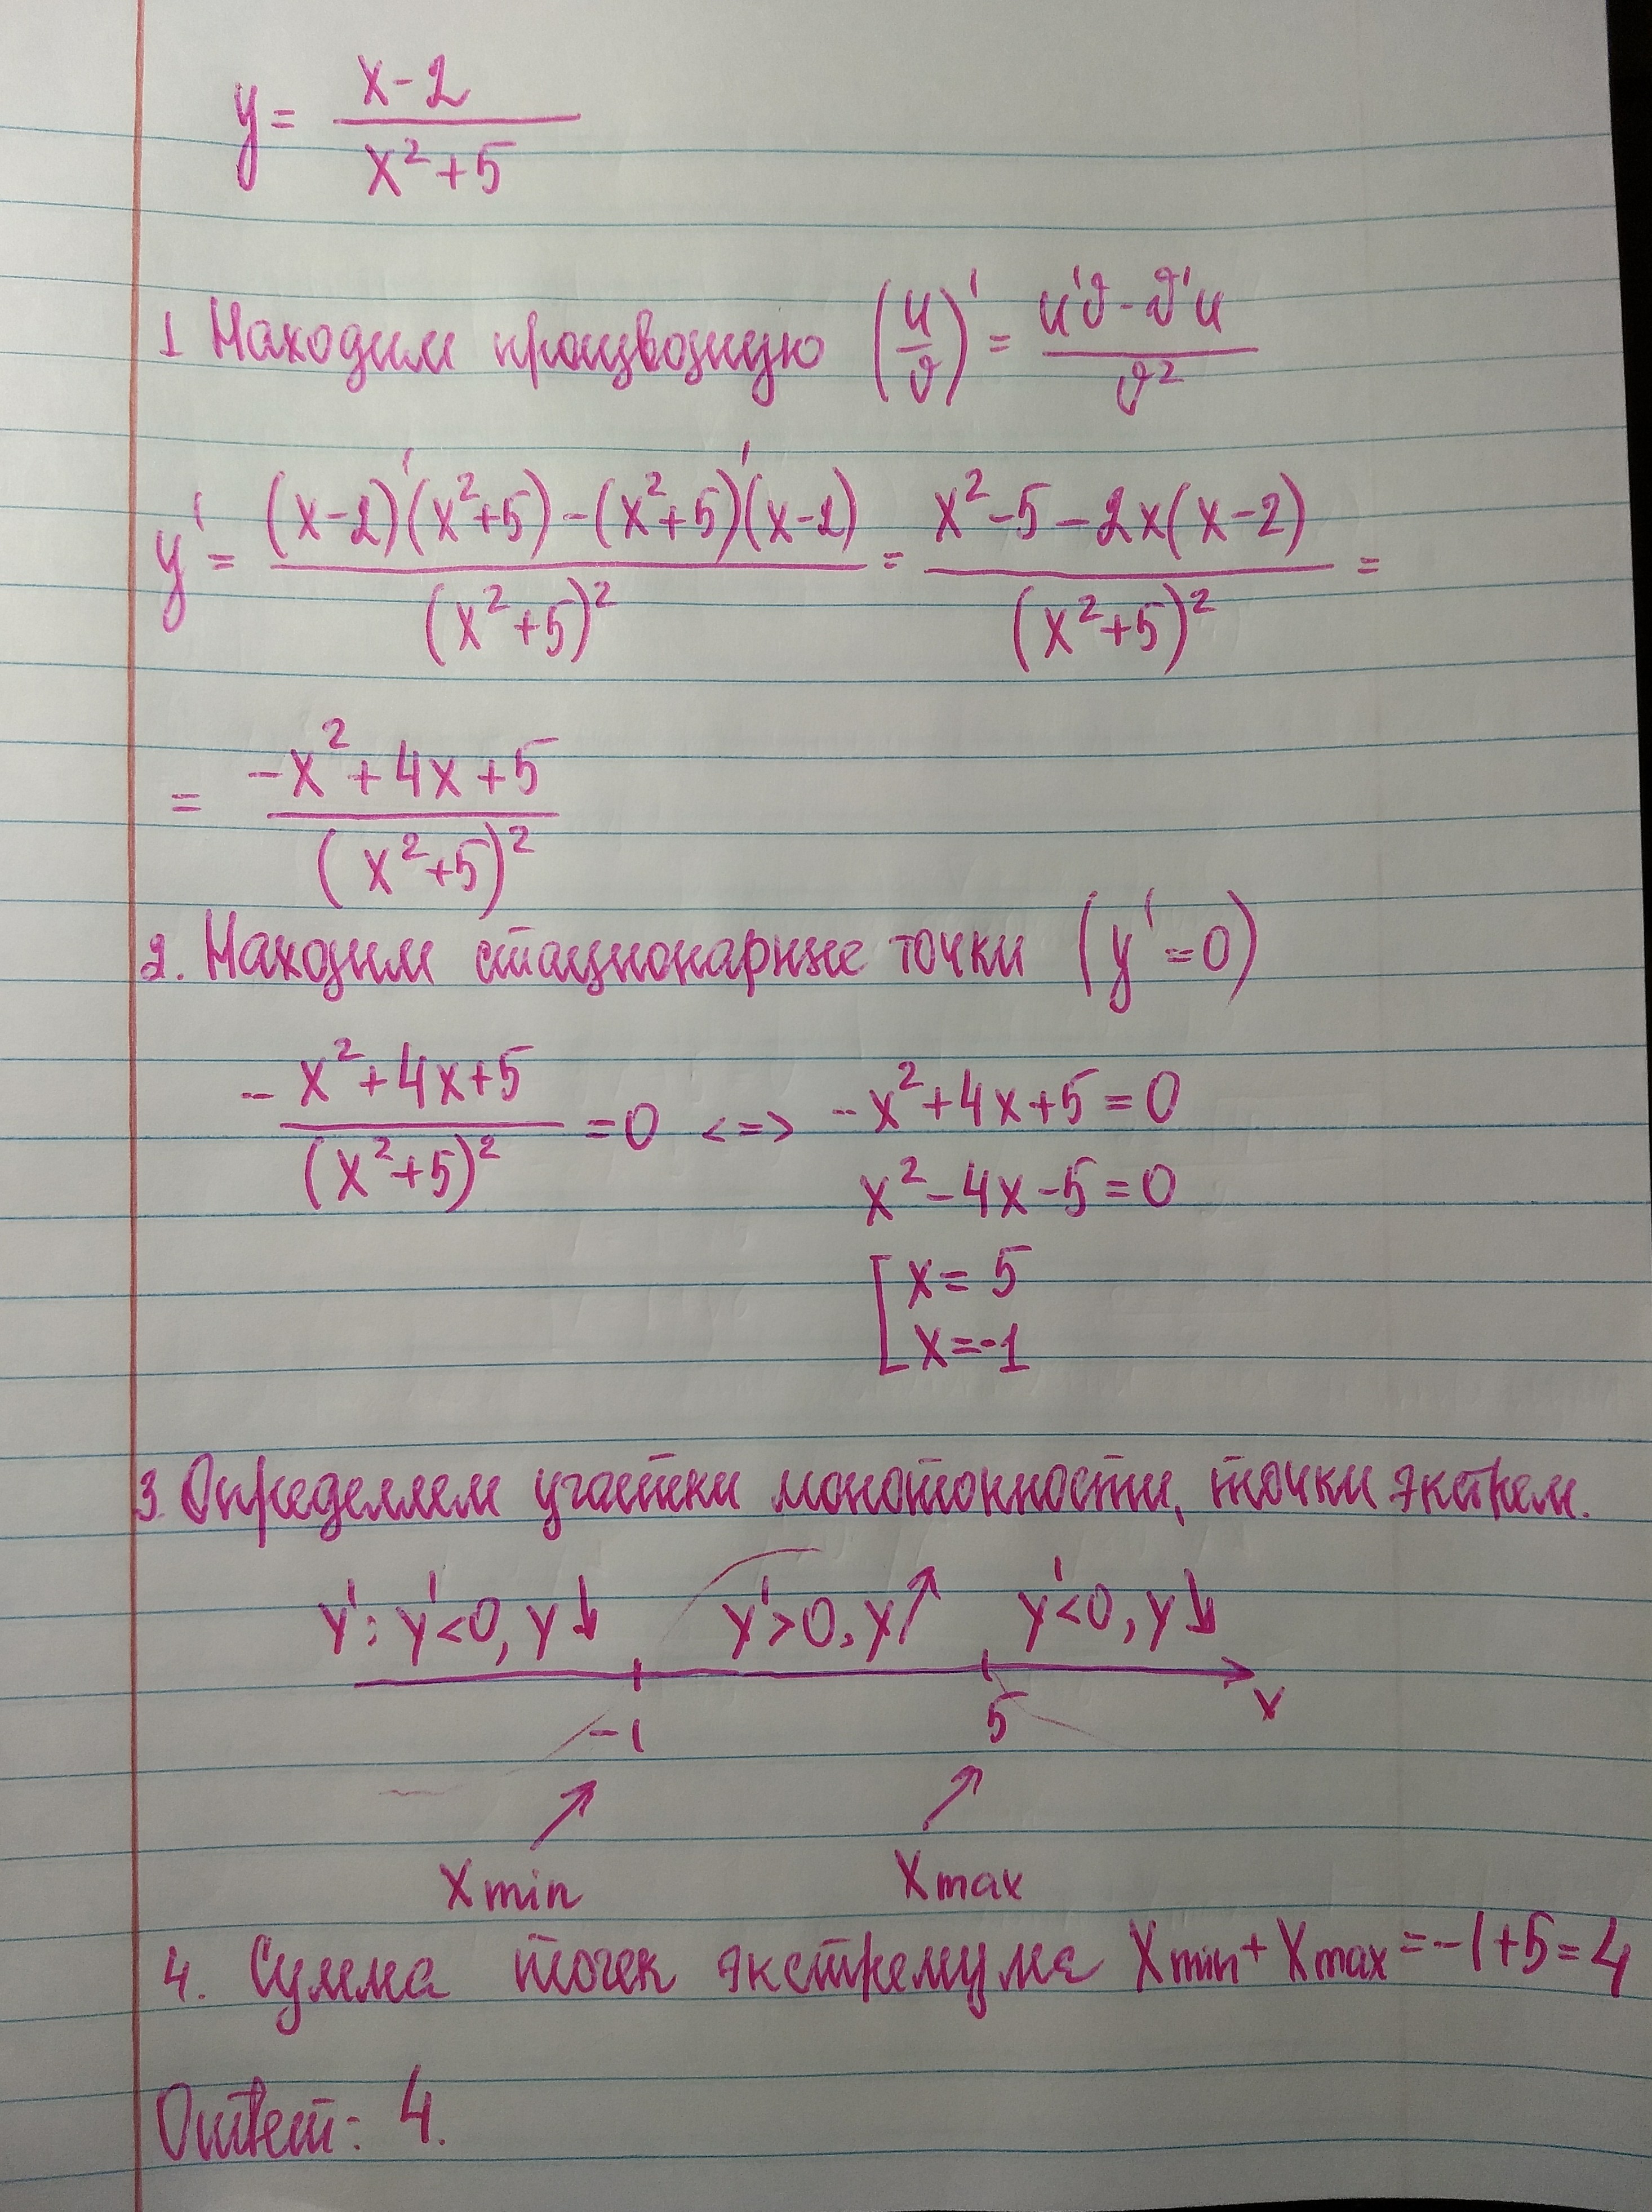 y = (x-2)/(x²+5)
1 Находим производную (u/v)' = (u'v - v'u)/v²
y' = ((x-2)'(x²+5) - (x²+5)'(x-2))/(x²+5)² = (x²-5-2x(x-2))/(x²+5)² =
= (-x²+4x+5)/(x²+5)²
2. Находим стационарные точки (y'=0)
(-x²+4x+5)/(x²+5)² = 0 <=> -x²+4x+5=0
x²-4x-5=0
[ x=5
x=-1
3. Определяем участки монотонности, точки экстрем.
y': y'<0, y↓ y'>0, y↗ y'<0, y↓
-1 5 x
↗ ↗
Xmin Xmax
4. Сумма точек экстремума Xmin+Xmax=-1+5=4
Ответ: 4.